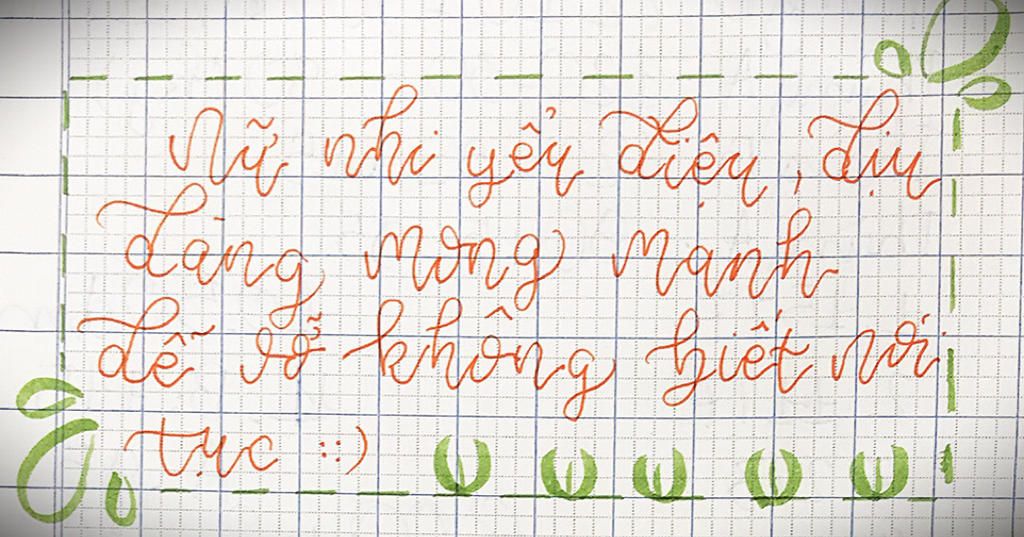 Nữ nhi yểu điệu, dịu
dàng mong manh
dễ vỡ không biết nói
tục ::)